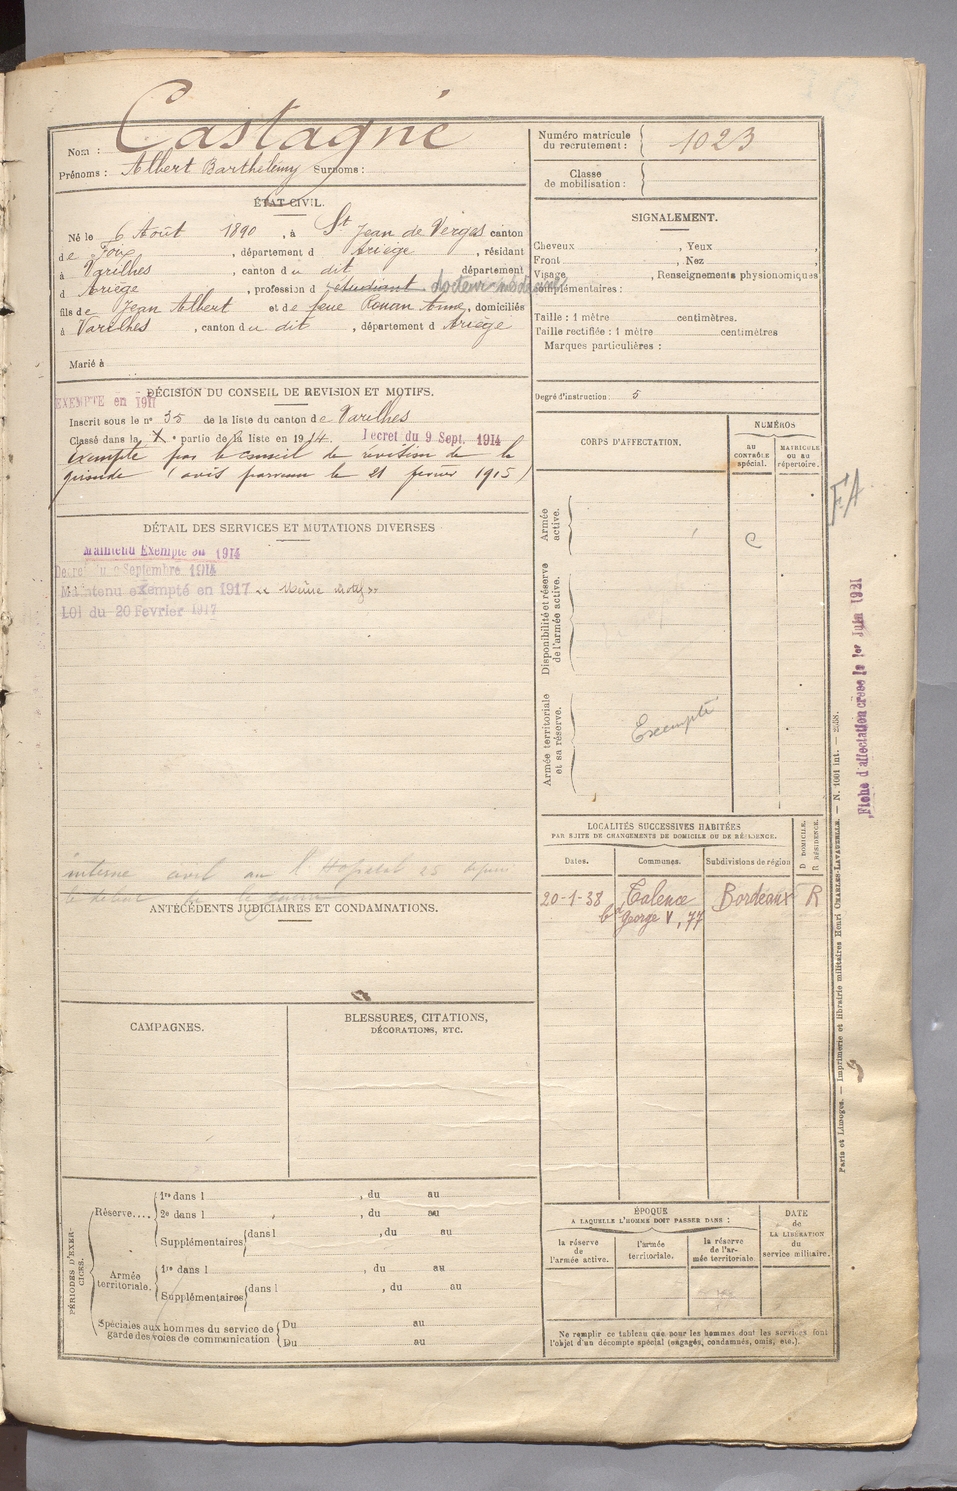 Nom : Castagné
Prénoms : Albert Barthélémy Surnoms :
ÉTAT CIVIL.
Né le 6 Août 1890, à St Jean de Verges canton
de Foix, département d Ariège, résidant
à Varilhes, canton du dit département
d Ariège, profession d étudiant docteur médecin
fils de Jean Albert et de feue Rouan Anne, domiciliés
à Varilhes, canton du dit, département d Ariège
Marié à
DÉCISION DU CONSEIL DE REVISION ET MOTIFS.
EXEMPTÉ en 1911
Inscrit sous le n° 35 de la liste du canton de Varilhes
Classé dans la X e partie de la liste en 1914. Décret du 9 Sept. 1914
Exempté par le conseil de révision de la
gironde (avis parvenu le 21 février 1915)
DÉTAIL DES SERVICES ET MUTATIONS DIVERSES
Maintenu Exempté en 1914
Décret du 9 Septembre 1914
Maintenu exempté en 1917 "Même motif"
LOI du 20 Février 1917
interne civil au l'Hopital 25 depuis
le début de la guerre
ANTÉCÉDENTS JUDICIAIRES ET CONDAMNATIONS.
CAMPAGNES.
BLESSURES, CITATIONS,
DÉCORATIONS, ETC.
PÉRIODES D'EXERCICES.
Réserve....
1re dans l , du au
2e dans l , du au
Supplémentaires dans l , du au
Armée territoriale.
1re dans l , du au
Supplémentaires dans l , du au
Spéciales aux hommes du service de garde des voies de communication
Du au
Du au
Numéro matricule du recrutement : 1023
Classe de mobilisation :
SIGNALEMENT.
Cheveux , Yeux ,
Front , Nez ,
Visage , Renseignements physionomiques
complémentaires :
Taille : 1 mètre centimètres.
Taille rectifiée : 1 mètre centimètres
Marques particulières :
Degré d'instruction : 5
CORPS D'AFFECTATION.
NUMÉROS
au CONTRÔLE spécial.
MATRICULE OU AU répertoire.
Armée active.
C
Disponibilité et réserve de l'armée active.
Armée territoriale et sa réserve.
Exempté
LOCALITÉS SUCCESSIVES HABITÉES
PAR SUITE DE CHANGEMENTS DE DOMICILE OU DE RÉSIDENCE.
Dates. Communes. Subdivisions de région D DOMICILE. R RÉSIDENCE.
20-1-38 Talence Bordeaux R
bd George V, 77
ÉPOQUE
A LAQUELLE L'HOMME DOIT PASSER DANS :
la réserve de l'armée active.
l'armée territoriale.
la réserve de l'armée territoriale.
DATE de LA LIBÉRATION du service militaire.
Ne remplir ce tableau que pour les hommes dont les services font
l'objet d'un décompte spécial (engagés, condamnés, omis, etc.).
FA
Fiche d'affectation créée le 1er Juin 1921
Paris et Limoges. — Imprimerie et librairie militaires Henri CHARLES-LAVAUZELLE. — N. 1001 int. — 2538.